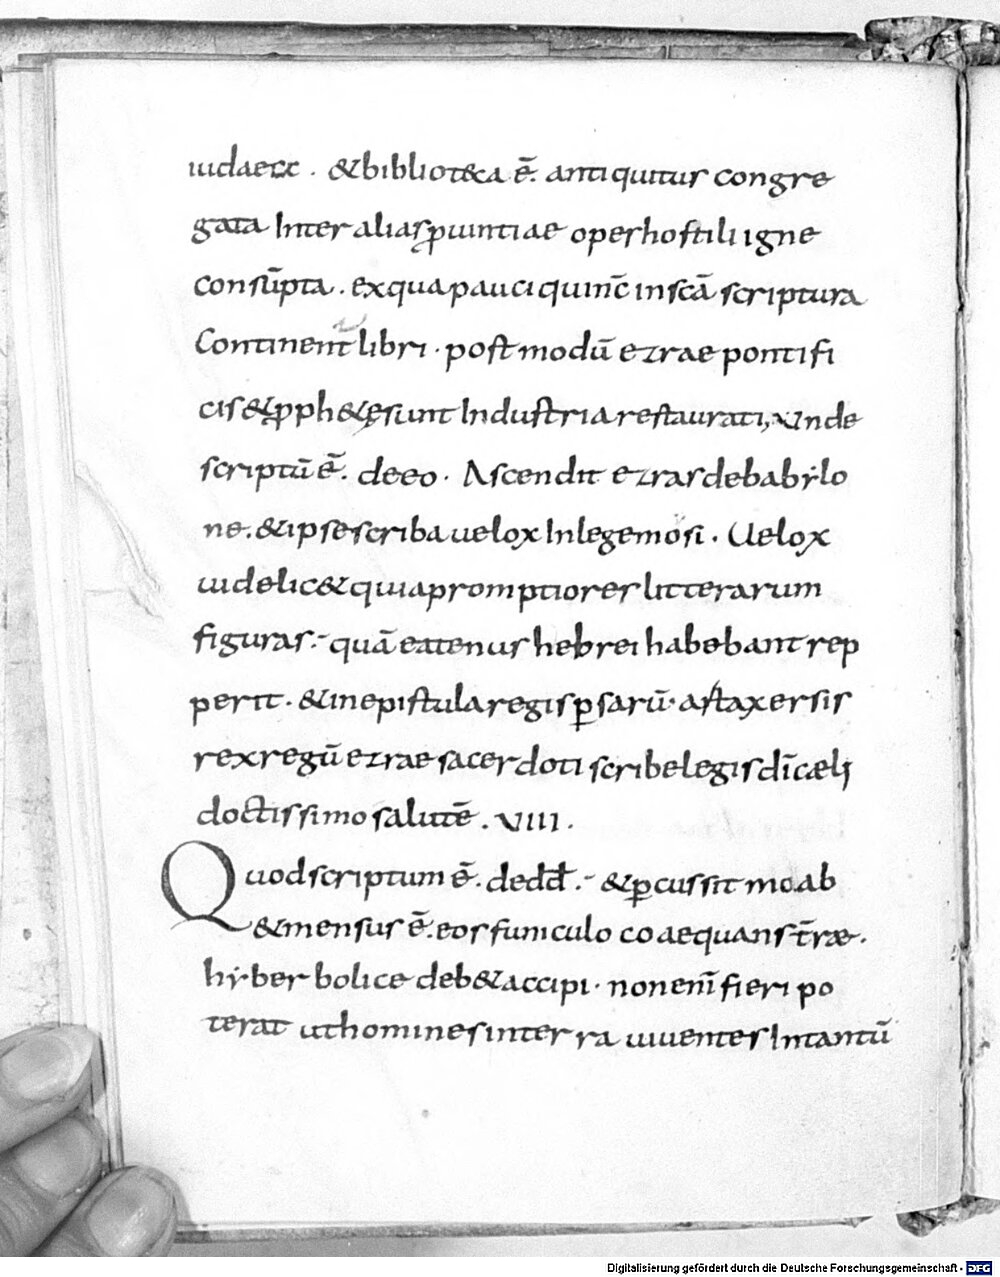 iudaeæ . &bibliotheca ē. antiquitur congre
gata Inter alias ꝓuintiae oper hostili igne
consūpta . ex qua pauci qui nc̄ in scā scriptura
Continent̄ libri . post modū ezrae pontifi
cis &ꝓph&ę sunt Industria restaurati, Unde
scriptū ē. de eo . Ascendit ezras de babẏlo
ne. &ipse scriba uelox In lege mosi . Uelox
uidelic& quia promptiores litterarum
figuras :- quā eatenus hebrei habebant rep
perit . &in epistula regis ꝑsarū. astaxersis
rex regū ezrae sacerdoti scribe legis dī cæli
doctissimo salutē . VIIII .
Quod scriptum ē. de dd̄ .- &ꝑcussit moab
&mensus ē. eos funiculo coaequans t̄ræ .
hẏberbolice deb& accipi . non enī fieri po
terat ut homines inter ra uiuentes In tantū
Digitalisierung gefördert durch die Deutsche Forschungsgemeinschaft - DFG